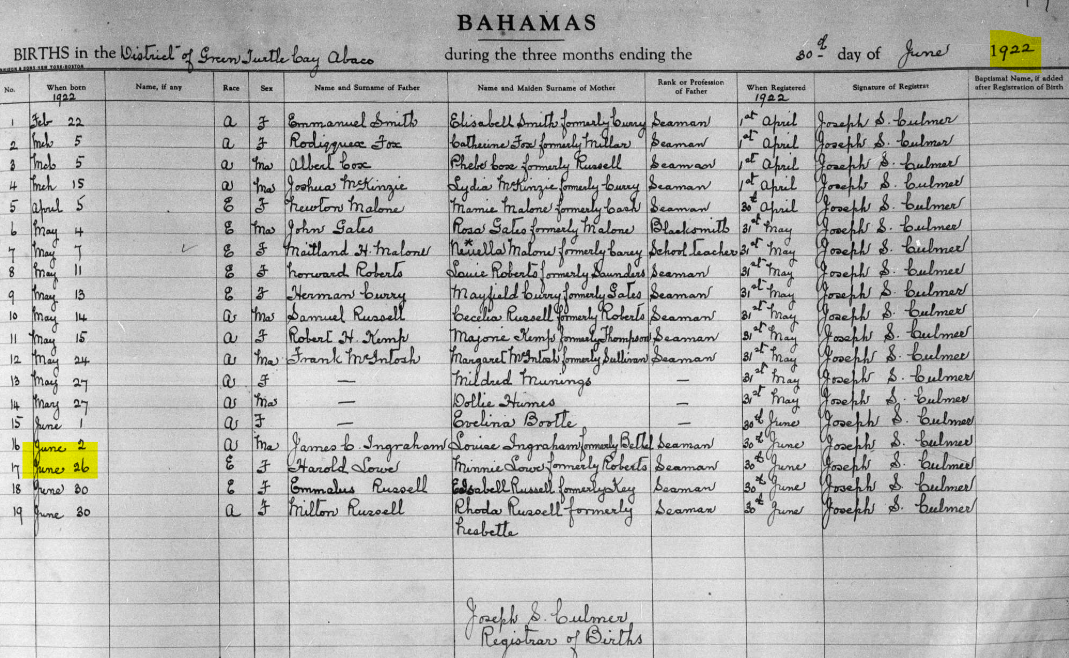 BAHAMAS
BIRTHS in the District of Green Turtle Cay Abaco during the three months ending the 30th day of June 1922
No. When born 1922 Name, if any Race Sex Name and Surname of Father Name and Maiden Surname of Mother Rank or Profession of Father When Registered 1922 Signature of Registrar Baptismal Name, if added after Registration of Birth
1 Feb 22 A F Emmanuel Smith Elisabell Smith formerly Curry Seaman 1st April Joseph S. Culmer
2 Mch 5 A F Rodiquex Fox Catherine Fox formerly Millar Seaman 1st April Joseph S. Culmer
3 Mch 5 A Ma Albert Cox Phebe Cox formerly Russell Seaman 1st April Joseph S. Culmer
4 Mch 15 A Ma Joshua McKinzie Lydia McKinzie formerly Curry Seaman 1st April Joseph S. Culmer
5 April 5 E F Newton Malone Mamie Malone formerly Cash Seaman 30th April Joseph S. Culmer
6 May 4 E Ma John Gates Rosa Gates formerly Malone Blacksmith 31st May Joseph S. Culmer
7 May 7 E F Maitland H. Malone Malone formerly Carey School teacher 31st May Joseph S. Culmer
8 May 11 E F Norward Roberts Louie Roberts formerly Saunders Seaman 31st May Joseph S. Culmer
9 May 13 E F Herman Curry Mayfield Curry formerly Gates Seaman 31st May Joseph S. Culmer
10 May 14 A Ma Samuel Russell Cecelia Russell formerly Roberts Seaman 31st May Joseph S. Culmer
11 May 15 A F Robert H. Kemp Majorie Kemp formerly Thompson Seaman 31st May Joseph S. Culmer
12 May 24 A Ma Frank McIntosh Margaret McIntosh formerly Sullivan Seaman 31st May Joseph S. Culmer
13 May 27 A F — Mildred Munings — 31st May Joseph S. Culmer
14 May 27 A Ma — Dollie Humes — 31st May Joseph S. Culmer
15 June 1 A F — Evelina Bootle — 30th June Joseph S. Culmer
16 June 2 A Ma James C. Ingraham Louise Ingraham formerly Bethel Seaman 30th June Joseph S. Culmer
17 June 26 E F Harold Lowe Minnie Lowe formerly Roberts Seaman 30th June Joseph S. Culmer
18 June 30 E F Emmalus Russell Russell formerly Key Seaman 30th June Joseph S. Culmer
19 June 30 A F Milton Russell Rhoda Russell formerly Seaman 30th June Joseph S. Culmer
Nesbette
Joseph S. Culmer
Registrar of Births